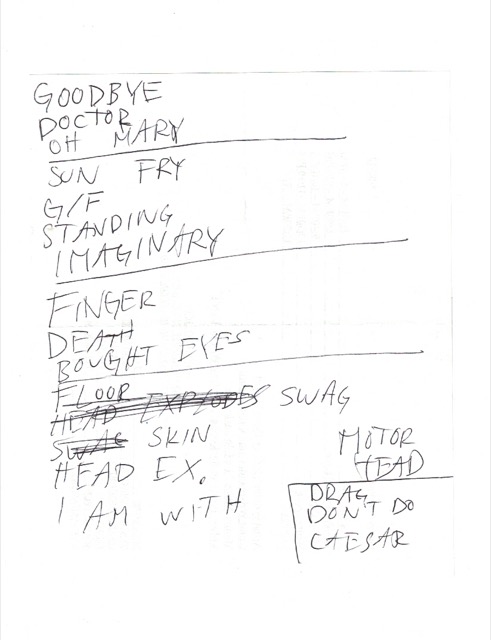 GOODBYE
DOCTOR
OH MARY
SUN FRY
G/F
STANDING
IMAGINARY
FINGER
DEATH
BOUGHT EYES
FLOOR
HEAD EXPLODES SWAG
SWAG SKIN
HEAD EX.
I AM WITH
MOTOR
HEAD
DRAG
DON'T DO
CAESAR